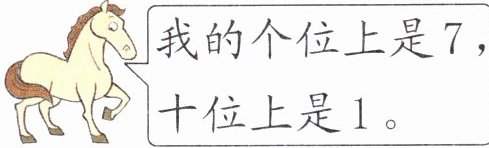 我的个位上是7，
十位上是1。